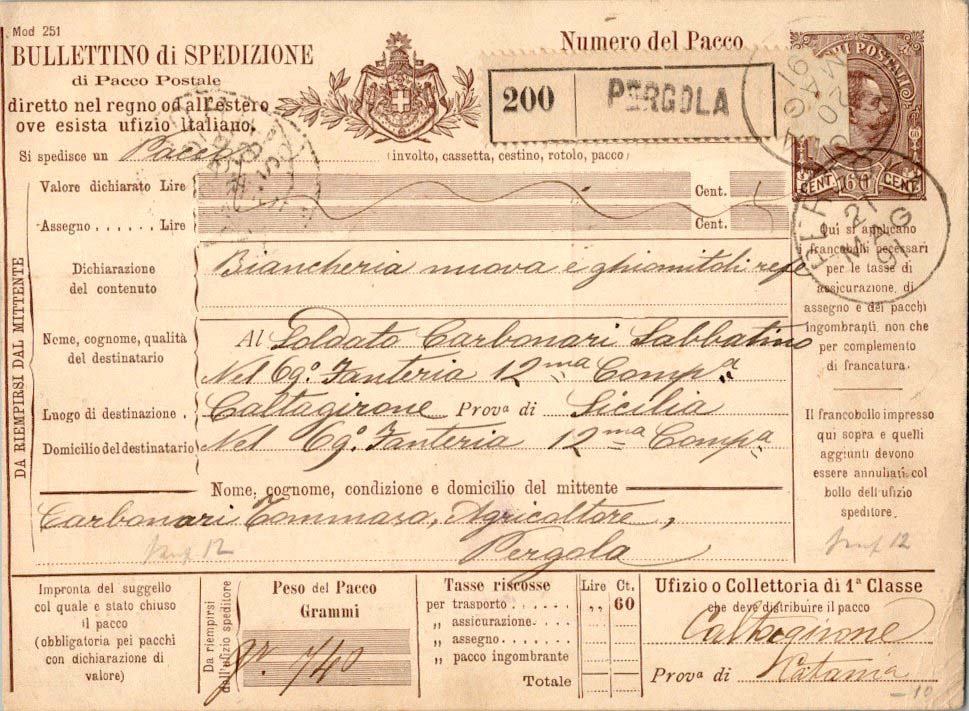 Mod 251
BULLETTINO di SPEDIZIONE
di Pacco Postale
diretto nel regno od all'estero
ove esista ufizio Italiano.
Numero del Pacco
200 PERGOLA
Si spedisce un Pacco (involto, cassetta, cestino, rotolo, pacco)
CENT. 60 CENT.
PERGOLA
21 MAG 91
DA RIEMPIRSI DAL MITTENTE
Valore dichiarato Lire Cent.
Assegno ...... Lire Cent.
Dichiarazione
del contenuto
Biancheria nuova e
Nome, cognome, qualità
del destinatario
Al Soldato Carbonari Sabbatino
Nel 69º Fanteria 12ma Compa
Luogo di destinazione . Caltagirone Prova di Sicilia
Domicilio del destinatario Nel 69º Fanteria 12ma Compa
Nome, cognome, condizione e domicilio del mittente
Carbonari Tommaso, Agricoltore,
Pergola
Qui si applicano
francobolli necessari
per le tasse di
assicurazione, di
assegno e dei pacchi
ingombranti, non che
per complemento
di francatura.
Il francobollo impresso
qui sopra e quelli
aggiunti devono
essere annullati col
bollo dell'ufizio
speditore.
Impronta del suggello
col quale e stato chiuso
il pacco
(obbligatoria pei pacchi
con dichiarazione di
valore)
Da riempirsi
dall'ufizio speditore
Peso del Pacco
Grammi
gr. 740
Tasse riscosse Lire Ct.
per trasporto ...... ,, 60
,, assicurazione.
,, assegno.
,, pacco ingombrante
Totale
Ufizio o Collettoria di 1ª Classe
che deve distribuire il pacco
Caltagirone
Prova di Catania
10